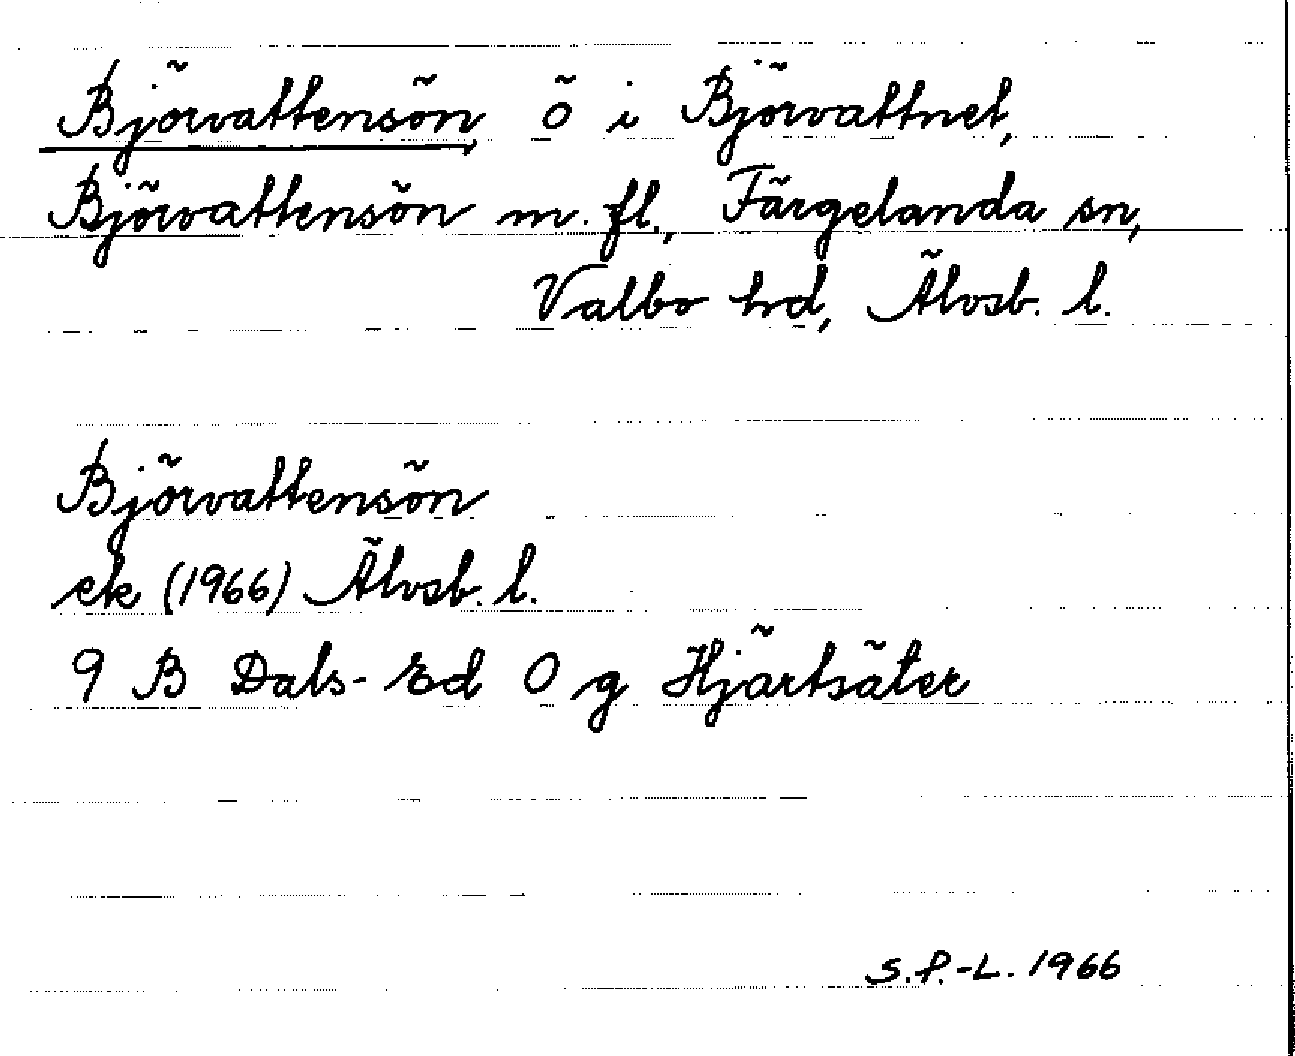 Björvattensön, ö i Björvattnet,
Björvattensön m. fl., Färgelanda sn,
Valbo hd, Älvsb. l.
Björvattensön
ek (1966) Älvsb. l.
9 B Dals-Ed 0 g Hjärtsäter
S.P.-L. 1966